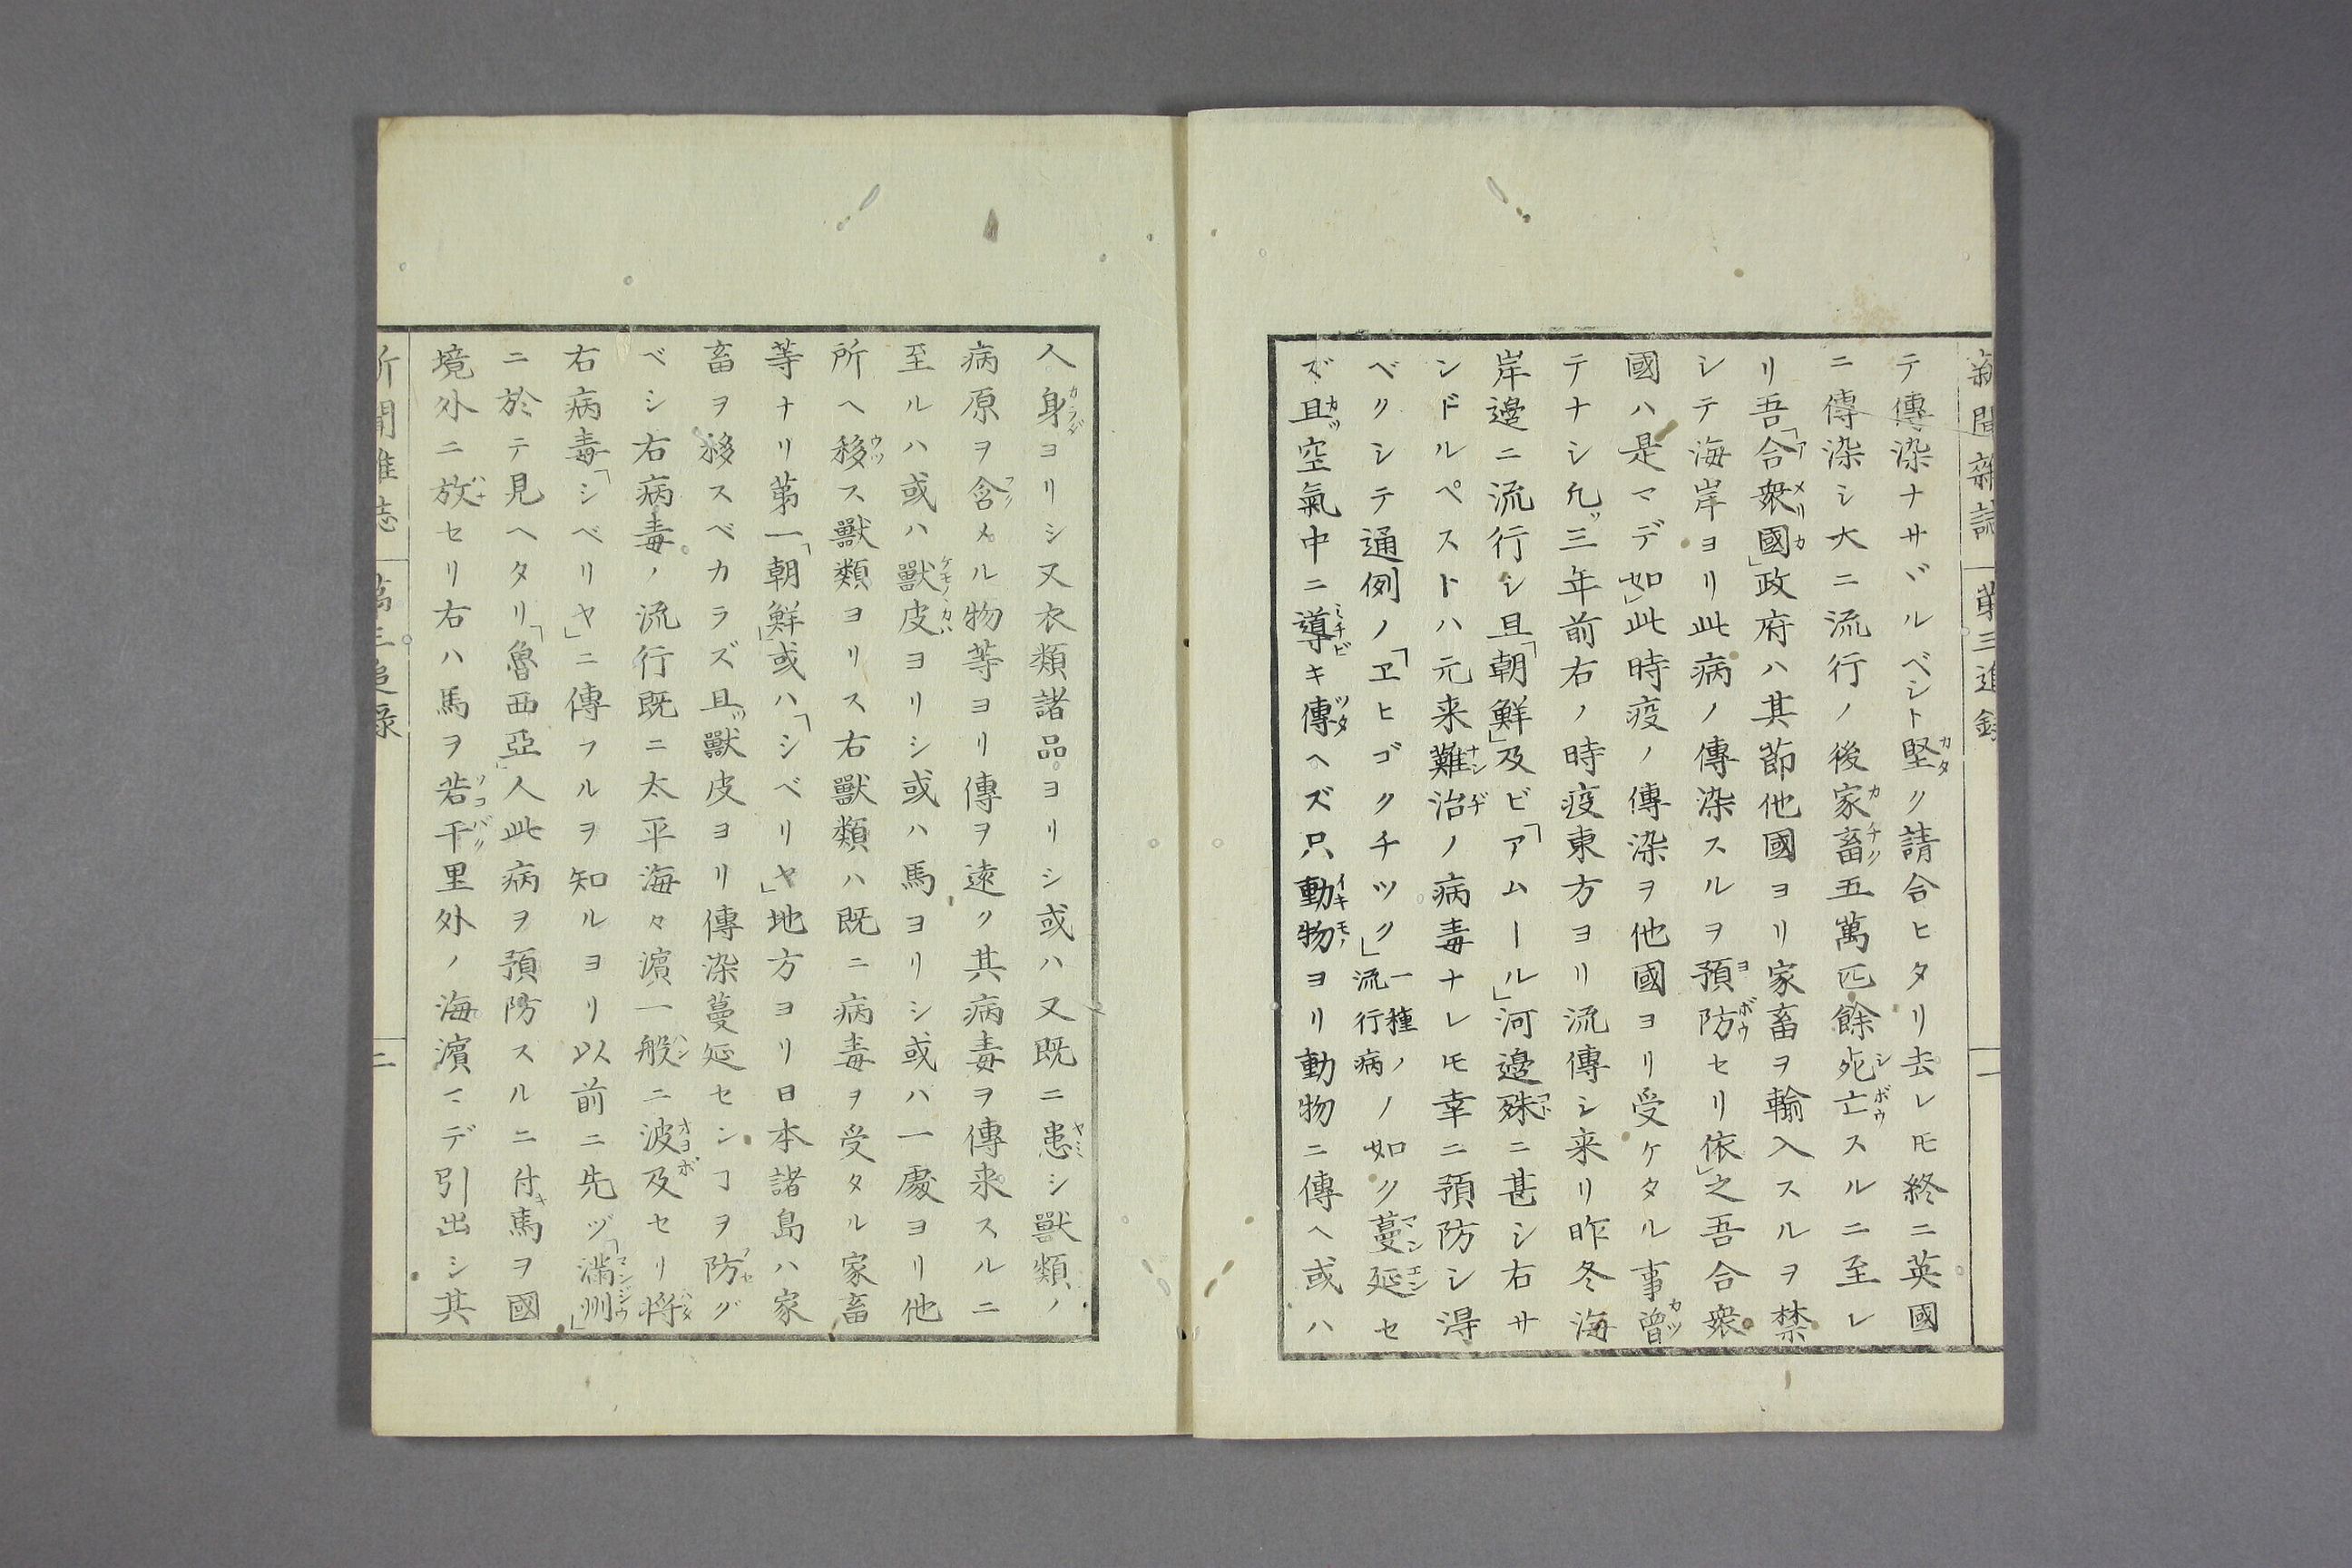 新聞雜誌 第三追録 一
テ傳染ナサヾルベシト堅ク請合ヒタリ去レ𪜈終ニ英國
ニ傳染シ大ニ流行ノ後家畜五萬匹餘死亡スルニ至レ
リ吾「合衆國」政府ハ其節他國ヨリ家畜ヲ輸入スルヲ禁
シテ海岸ヨリ此病ノ傳染スルヲ預防セリ依之吾合衆
國ハ是マデ如此時疫ノ傳染ヲ他國ヨリ受ケタル事曽
テナシ凢三年前右ノ時疫東方ヨリ流傳シ来リ昨冬海
岸邊ニ流行シ且「朝鮮」及ビ「アムール」河邊殊ニ甚シ右サ
ンドルペストハ元来難治ノ病毒ナレ𪜈幸ニ預防シ得
ベクシテ通例ノ「ヱヒゴクチツク」一種ノ流行病ノ如ク蔓延セ
ズ且空氣中ニ導キ傳ヘズ只動物ヨリ動物ニ傳ヘ或ハ
人身ヨリシ又衣類諸品ヨリシ或ハ又既ニ患シ獸類ノ
病原ヲ含メル物等ヨリ傳ヲ遠ク其病毒ヲ傳来スルニ
至ルハ或ハ獸皮ヨリシ或ハ馬ヨリシ或ハ一處ヨリ他
所ヘ移ス獸類ヨリス右獸類ハ既ニ病毒ヲ受タル家畜
等ナリ第一「朝鮮」或ハ「シベリヤ」地方ヨリ日本諸島ハ家
畜ヲ移スベカラズ且獸皮ヨリ傳染蔓延センヿヲ防グ
ベシ右病毒ノ流行既ニ太平海々濵一般ニ波及セリ将
右病毒「シベリヤ」ニ傳フルヲ知ルヨリ以前ニ先ヅ「満州」
ニ於テ見ヘタリ「魯西亞」人此病ヲ預防スルニ付馬ヲ國
境外ニ放セリ右ハ馬ヲ若干里外ノ海濵マデ引出シ其
二